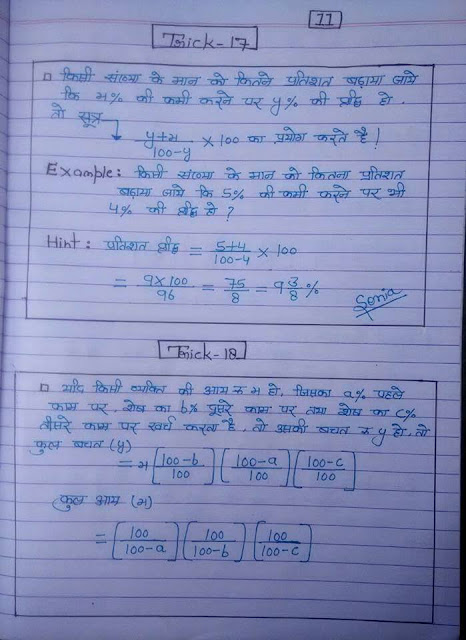 11
Trick-17
□ किसी संख्या के मान को कितने प्रतिशत बढ़ाया जाये
कि x% की कमी करने पर y% की वृद्धि हो.
तो सूत्र
y+x/100-y × 100 का प्रयोग करते है!
Example: किसी संख्या के मान को कितना प्रतिशत
बढ़ाया जाये कि 5% की कमी करने पर भी
4% की वृद्धि हो ?
Hint: प्रतिशत वृद्धि = 5+4/100-4 × 100
= 9×100/96 = 75/8 = 9 3/8 %
Sonia
Trick-18
□ यदि किसी व्यक्ति की आय रु x हो, जिसका a% पहले
काम पर, शेष का b% दूसरे काम पर तथा शेष का c%
तीसरे काम पर खर्च करता है, तो उसकी बचत रु y हो, तो
कुल बचत (y)
= x [100-b/100] [100-a/100] [100-c/100]
कुल आय (x)
= [100/100-a] [100/100-b] [100/100-c]